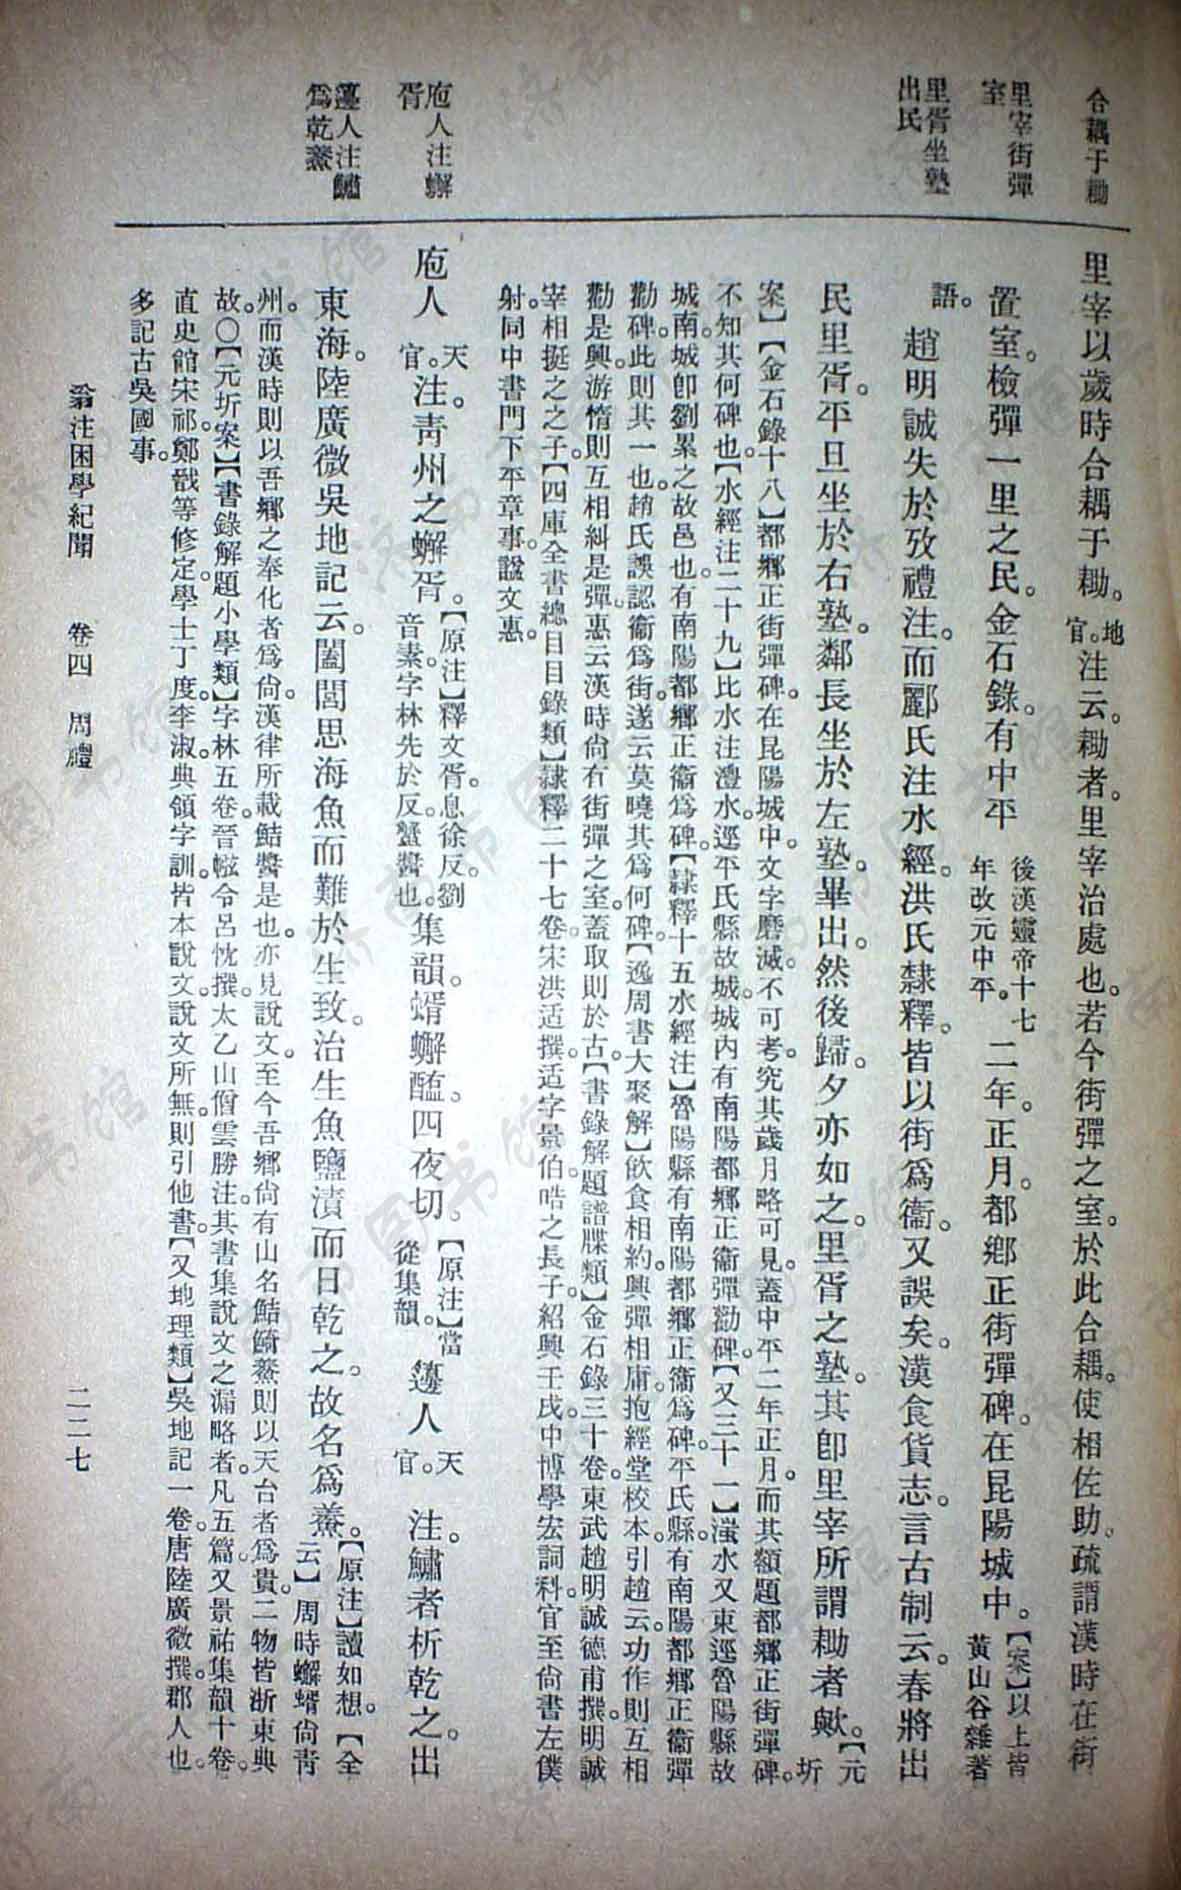 合耦于耡
里宰街彈
室
里胥坐塾
出民
庖人注蠏
胥
籩人注鱐
爲乾鱶
里宰以歲時合耦于耡。地官。注云。耡者。里宰治處也。若今街彈之室。於此合耦。使相佐助。疏謂漢時在街
置室。檢彈一里之民。金石錄。有中平後漢靈帝十七年改元中平。二年。正月。都鄕正街彈碑。在昆陽城中。【案】以上皆黃山谷雜著
語。趙明誠失於攷禮注。而酈氏注水經。洪氏隸釋。皆以街爲衞。又誤矣。漢食貨志。言古制云。春將出
民。里胥。平旦坐於右塾。鄰長坐於左塾。畢出。然後歸。夕亦如之。里胥之塾。其卽里宰所謂耡者歟。【元圻
案】【金石錄十八】都鄕正街彈碑。在昆陽城中。文字磨滅。不可考究。其歲月略可見。蓋中平二年正月。而其額題都鄕正街彈碑。
不知其何碑也。【水經注二十九】比水注澧水。逕平氏縣故城。城內有南陽都鄕正衞彈勸碑。【又三十一】滍水又東逕魯陽縣故
城南。城卽劉累之故邑也。有南陽都鄕正衞爲碑。【隸釋十五水經注】魯陽縣有南陽都鄕正衞爲碑。平氏縣。有南陽都鄕正衞彈
勸碑。此則其一也。趙氏誤認衞爲街。遂云莫曉其爲何碑。【逸周書大聚解】飮食相約。興彈相庸。抱經堂校本。引趙云。功作則互相
勸。是興。游惰則互相糾。是彈。惠云漢時尙有街彈之室。蓋取則於古。【書錄解題譜牒類】金石錄三十卷。東武趙明誠德甫撰。明誠
宰相挺之之子。【四庫全書總目目錄類】隸釋二十七卷。宋洪适撰。适字景伯。皓之長子。紹興壬戌。中博學宏詞科。官至尙書左僕
射。同中書門下平章事。諡文惠。
庖人天官。注。靑州之蠏胥。【原注】釋文胥。息徐反。劉音素。字林先於反。蟹醬也。集韻。蝑蠏醢。四夜切。【原注】當從集韻。籩人天官。注。鱐者析乾之。出
東海。陸廣微吳地記云。闔閭思海魚而難於生致。治生魚鹽漬而日乾之。故名爲鱶。【原注】讀如想。【全云】周時蠏蝑尙靑
州。而漢時則以吾鄕之奉化者爲尙。漢律所載鮚醬是也。亦見說文。至今吾鄕尙有山名鮚鯌鱶則以天台者爲貴。二物皆浙東典
故。○【元圻案】【書錄解題小學類】字林五卷。晉㡉令呂忱撰。太乙山僧雲勝注。其書集說文之漏略者。凡五篇。又景祐集韻十卷。
直史館宋祁。鄭戩等修定。學士丁度。李淑。典領字訓。皆本說文。說文所無。則引他書。【又地理類】吳地記一卷。唐陸廣微撰。郡人也。
多記古吳國事。
翁注困學紀聞　卷四　周禮　二二七